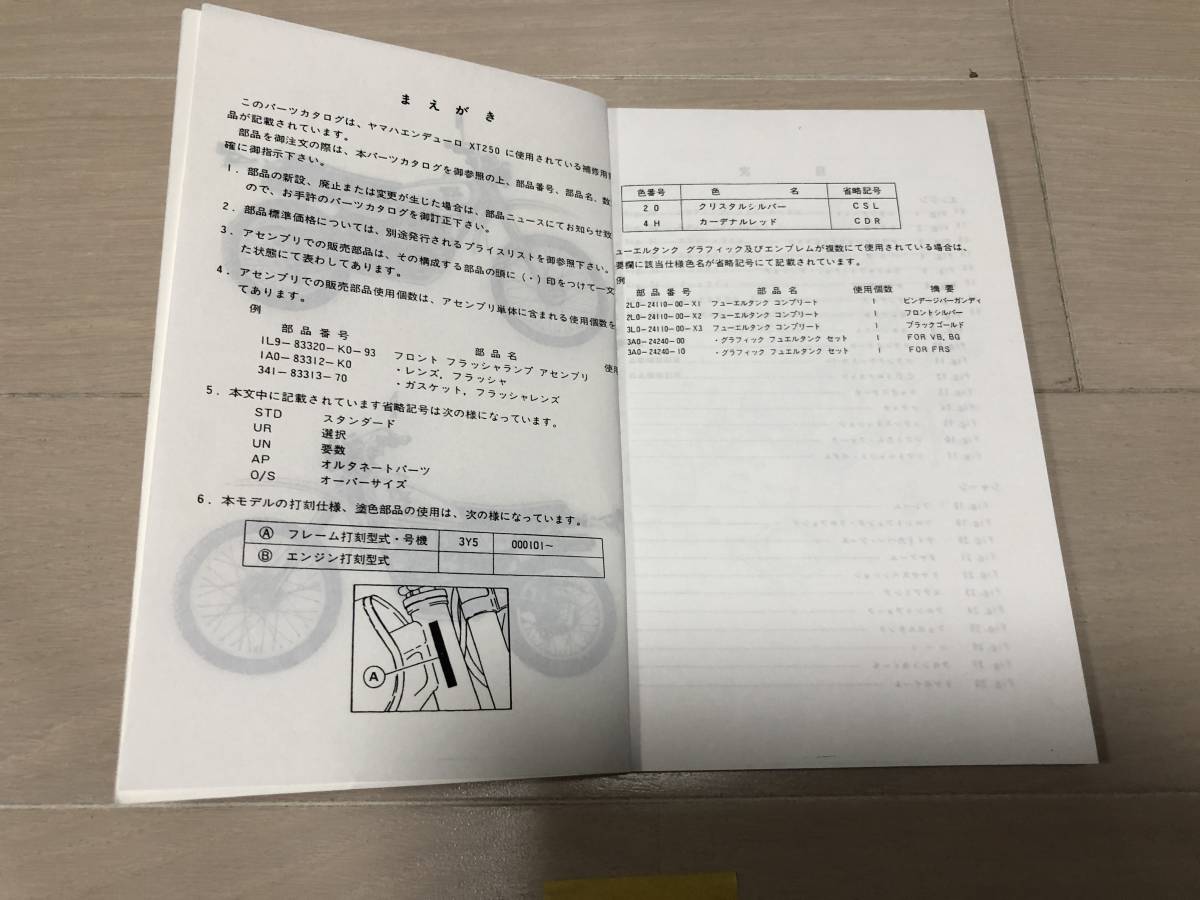 まえがき
このパーツカタログは、ヤマハエンデューロ XT250 に使用されている補修用
品が記載されています。
部品を御注文の際は、本パーツカタログを御参照の上、部品番号、部品名、数
確に御指示下さい。
1．部品の新設、廃止または変更が生じた場合は、部品ニュースにてお知らせ致
ので、お手許のパーツカタログを御訂正下さい。
2．部品標準価格については、別途発行されるプライスリストを御参照下さい。
3．アセンブリでの販売部品は、その構成する部品の頭に（・）印をつけて一文
た状態にて表わしてあります。
4．アセンブリでの販売部品使用個数は、アセンブリ単体に含まれる使用個数を
てあります。
例
部品番号 部品名 使用
1L9-83320-K0-93 フロント フラッシャランプ アセンブリ
1A0-83312-K0 ・レンズ，フラッシャ
341-83313-70 ・ガスケット，フラッシャレンズ
5．本文中に記載されています省略記号は次の様になっています。
STD スタンダード
UR 選択
UN 要数
AP オルタネートパーツ
O/S オーバーサイズ
6．本モデルの打刻仕様、塗色部品の使用は、次の様になっています。
Ⓐ フレーム打刻型式・号機 3Y5 000101～
Ⓑ エンジン打刻型式
Ⓐ
色番号 色名 省略記号
20 クリスタルシルバー CSL
4H カーデナルレッド CDR
ューエルタンク グラフィック及びエンブレムが複数にて使用されている場合は、
要欄に該当仕様色名が省略記号にて記載されています。
例
部品番号 部品名 使用個数 摘要
2L0-24110-00-X1 フューエルタンク コンプリート 1 ビンデージバーガンディ
2L0-24110-00-X2 フューエルタンク コンプリート 1 フロントシルバー
3L0-24110-00-X3 フューエルタンク コンプリート 1 ブラックゴールド
3A0-24240-00 ・グラフィック フュエルタンク セット 1 FOR VB, BG
3A0-24240-10 ・グラフィック フュエルタンク セット 1 FOR FRS